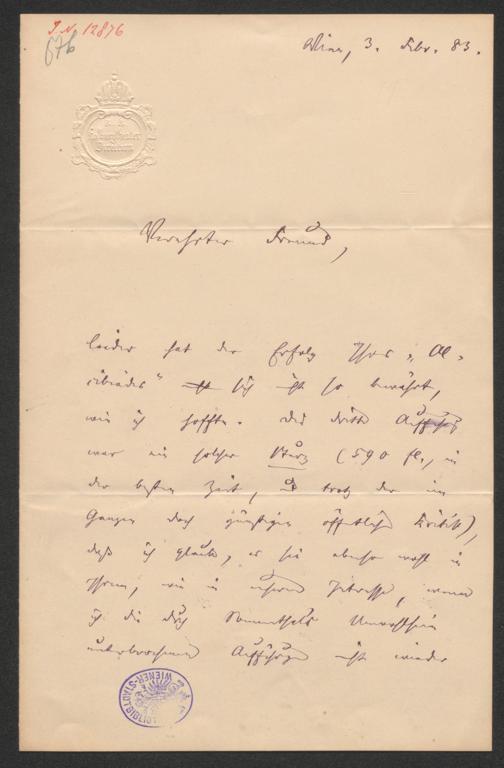 I.N. 12876
676
Wien, 3. Febr. 83.
Verehrter Freund,
leider hat der Erfolg Ihres „Al-
cibiades" sich nicht so bewährt,
wie ich hoffte. Die dritte Aufführg
war ein solcher Sturz (590 fl., in
der besten Zeit, u trotz der im
Ganzen doch günstigen öffentlich Kritik),
daß ich glaube, es sei ebenso wohl in
Ihrem, wie in unserem Interesse, wenn
ich die durch Sonnenthals Unwohlsein
unterbrochenen Aufführgen nicht wieder
WIENER-STADTBIBLIOTHEK